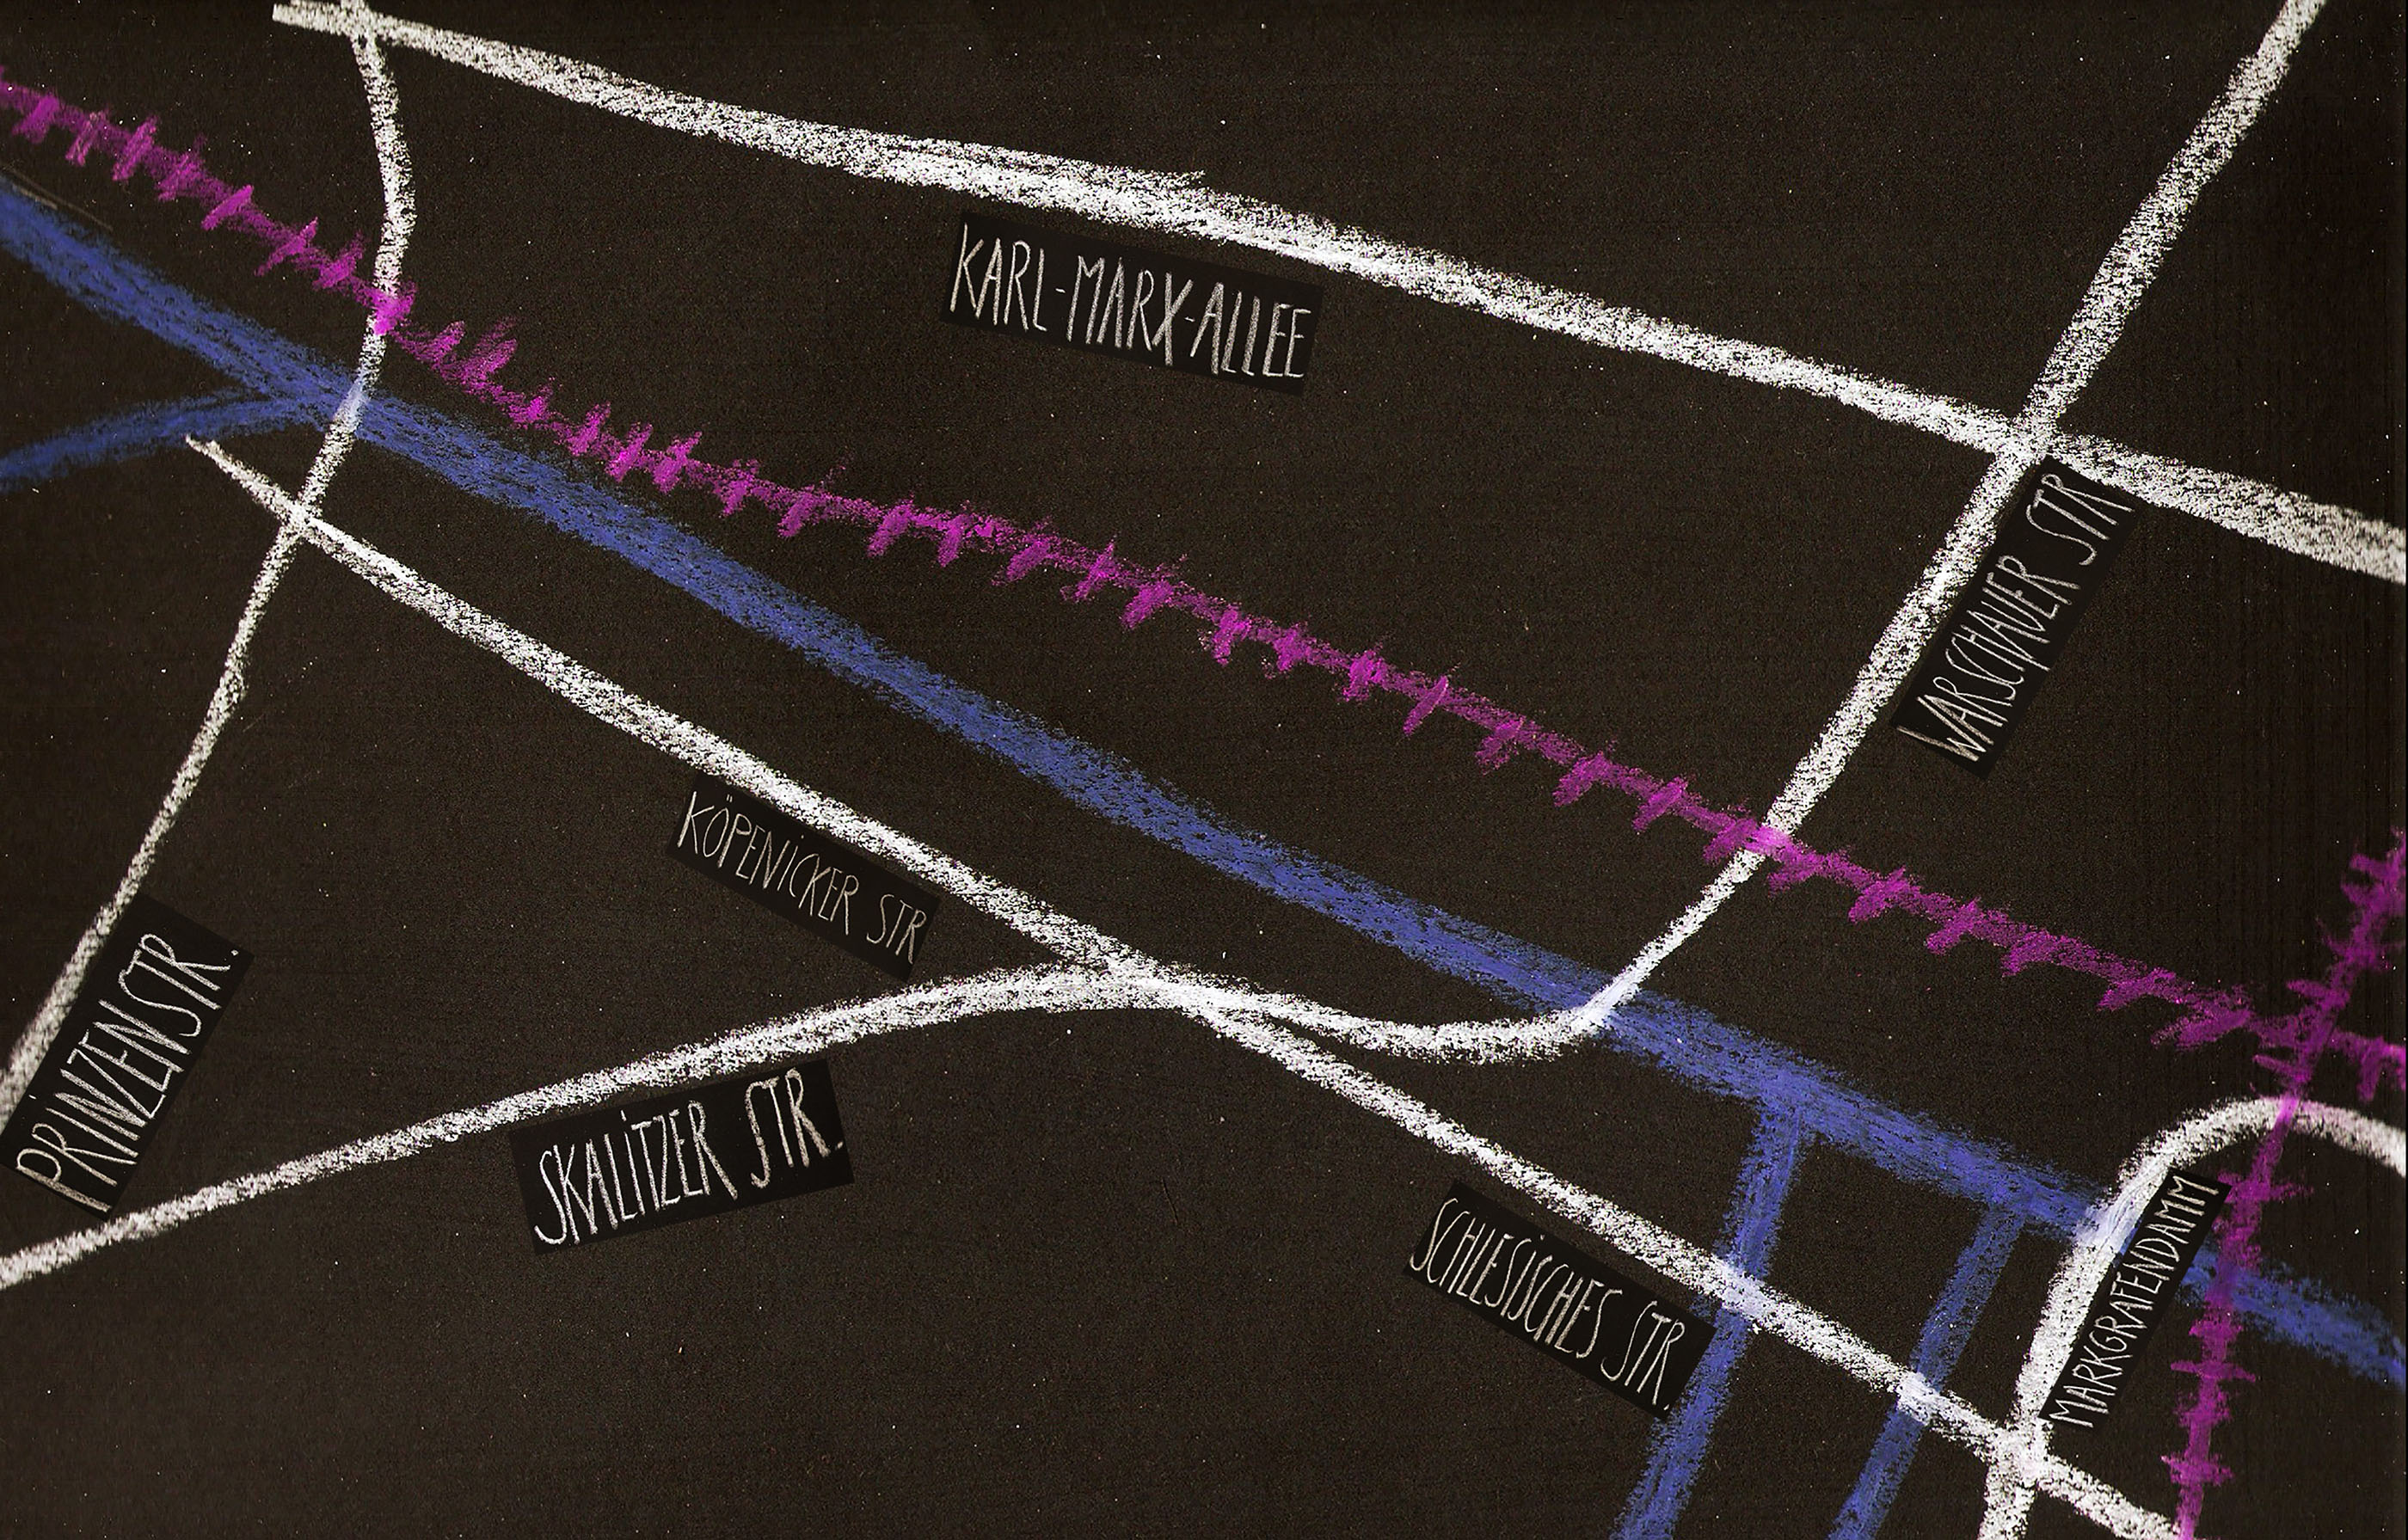 KARL-MARX-ALLEE
WARSCHAUER STR
KÖPENICKER STR
PRINZENSTR.
SKALITZER STR.
SCHLESISCHES STR.
MARKGRAFENDAMM